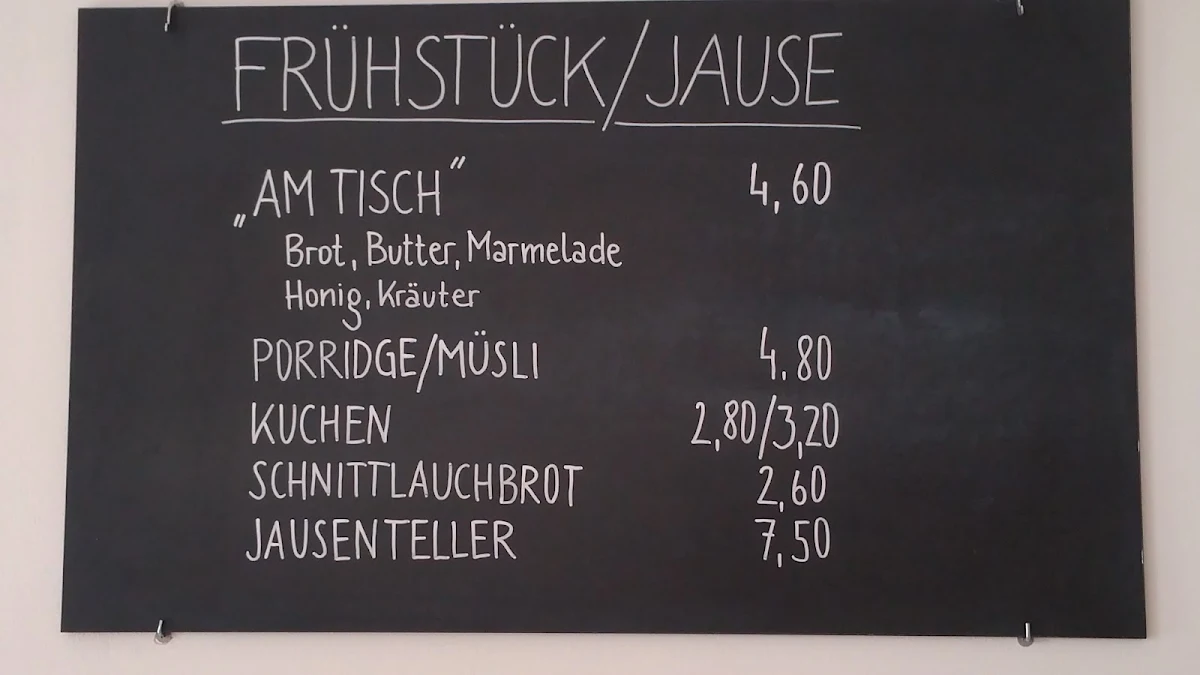 FRÜHSTÜCK/JAUSE
„AM TISCH" 4,60
Brot, Butter, Marmelade
Honig, Kräuter
PORRIDGE/MÜSLI 4.80
KUCHEN 2,80/3,20
SCHNITTLAUCHBROT 2,60
JAUSENTELLER 7,50